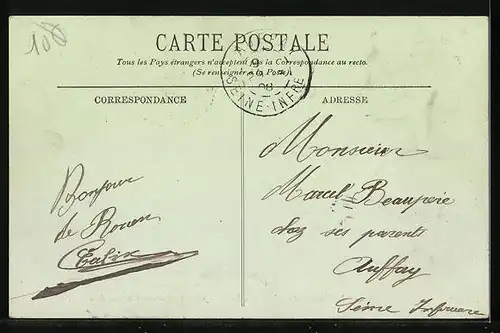 10
CARTE POSTALE
Tous les Pays étrangers n'acceptent pas la Correspondance au recto.
(Se renseigner à la Poste).
SEINE-INFRE
CORRESPONDANCE
ADRESSE
Bonjour
de Rouen
Monsieur
Marcel Beaupère
chez ses parents
Auffay
Seine Inférieure